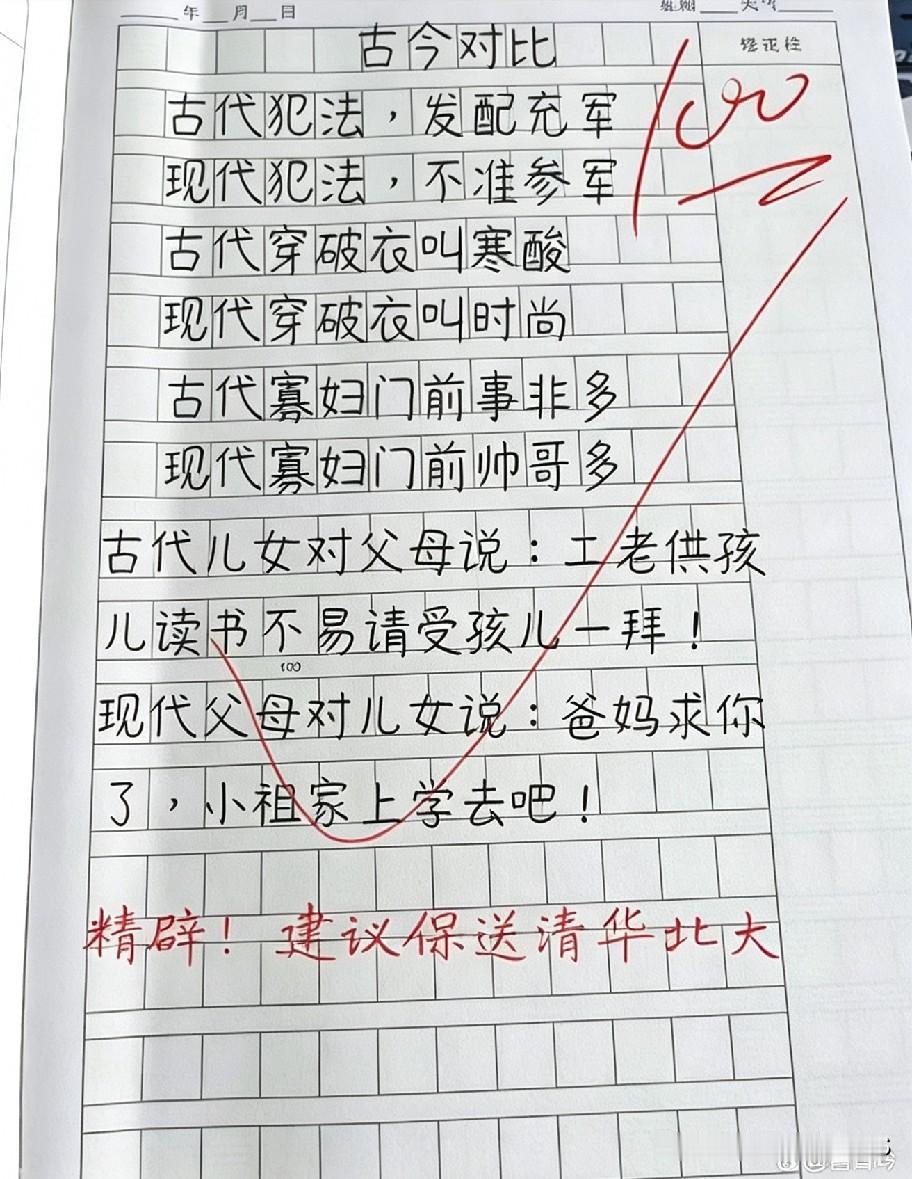 年 月 日
古今对比
修正栏
100
古代犯法，发配充军
现代犯法，不准参军
古代穿破衣叫寒酸
现代穿破衣叫时尚
古代寡妇门前事非多
现代寡妇门前帅哥多
古代儿女对父母说：二老供孩
儿读书不易请受孩儿一拜！
100
现代父母对儿女说：爸妈求你
了，小祖家上学去吧！
精辟！建议保送清华北大